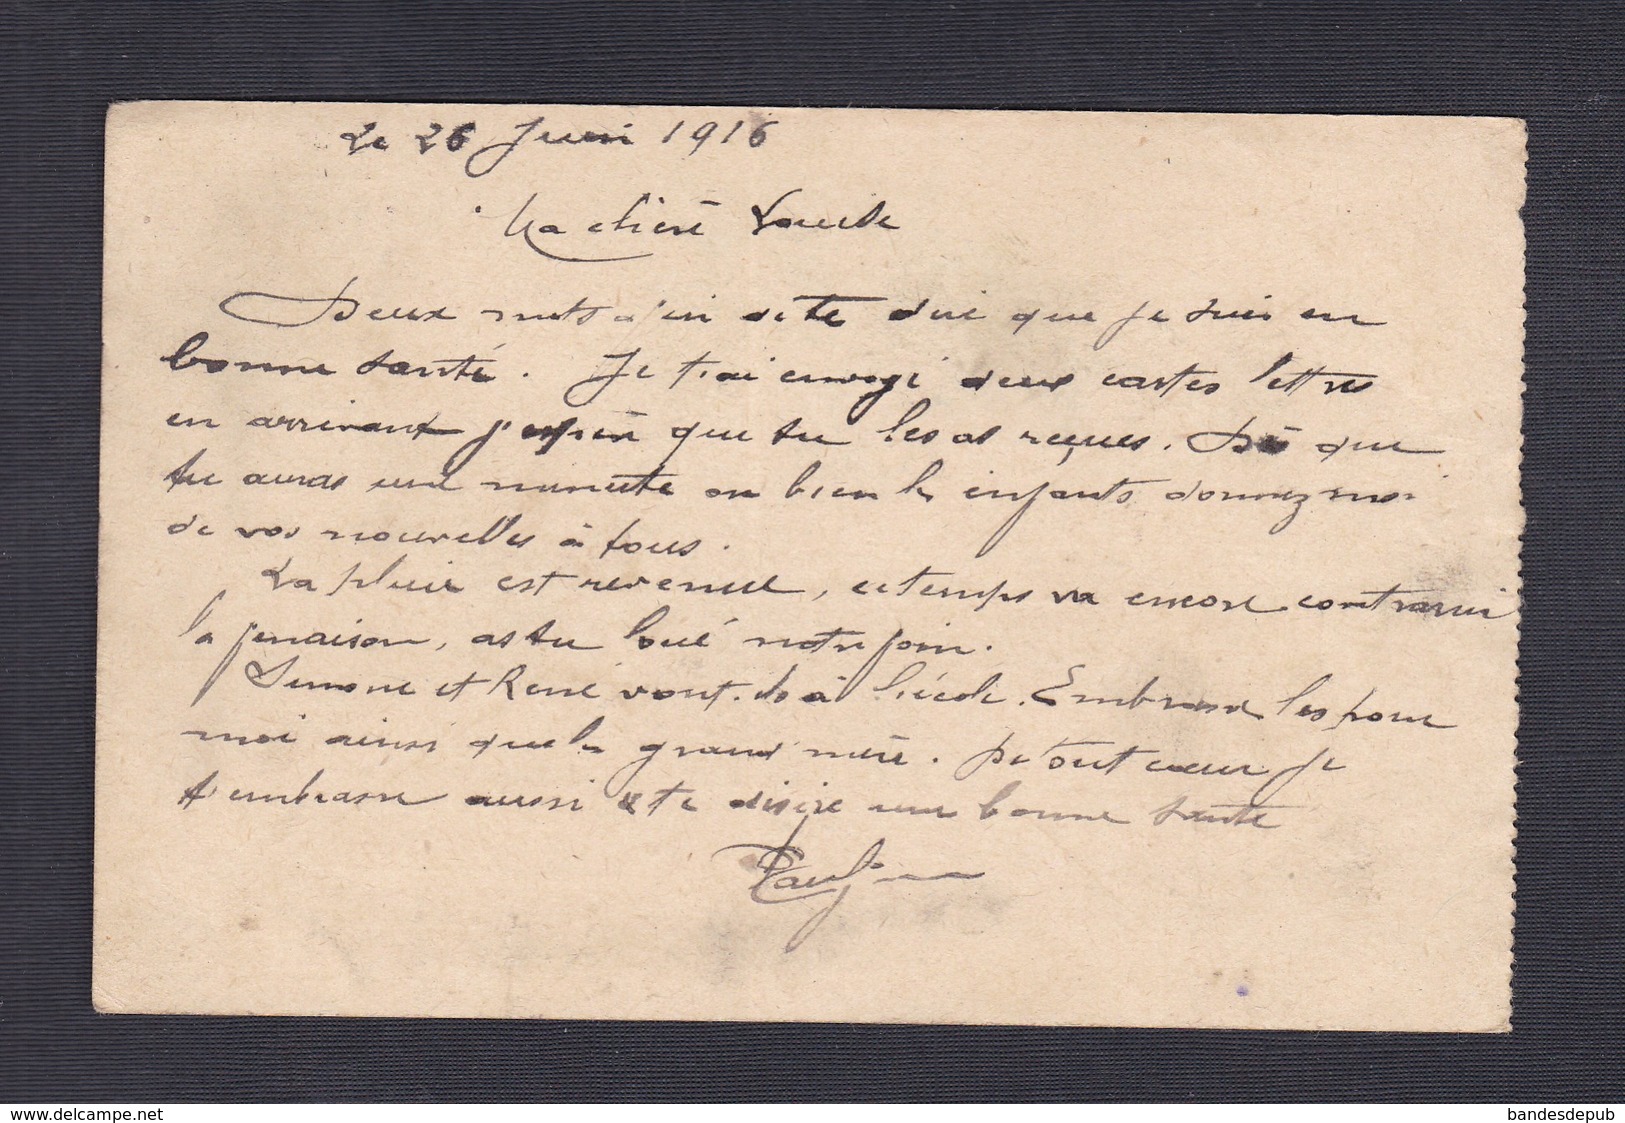 Le 26 Juin 1916
Ma chère Louise
Deux mots d'ici de te dire que je suis en
bonne santé. Je t'ai envoyé deux cartes lettres
en arrivant j'espère que tu les as reçues. Dès que
tu auras une minute ou bien les enfants donnez moi
de vos nouvelles à tous.
La pluie est revenue, ce temps va encore contrarier
la fenaison, as tu loué notre foin.
Simone et René vont-ils à l'école. Embrasse les pour
moi ainsi que la grand mère. De tout cœur je
t'embrasse aussi et te désire une bonne santé
Paul
www.delcampe.net
bandesdepub